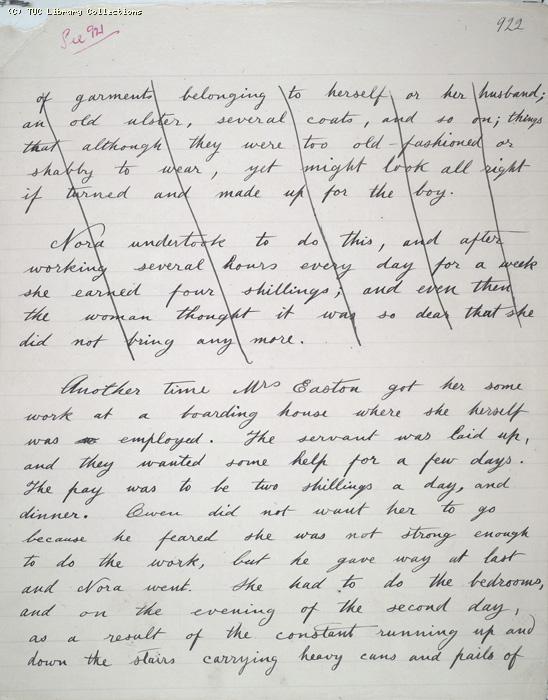 (C) TUC Library Collections
See 921
922
of garments belonging to herself or her husband;
an old ulster, several coats, and so on; things
that although they were too old-fashioned or
shabby to wear, yet might look all right
if turned and made up for the boy.
Nora undertook to do this, and after
working several hours every day for a week
she earned four shillings; and even then
the woman thought it was so dear that she
did not bring any more.
Another time Mrs Easton got her some
work at a boarding house where she herself
was employed. The servant was laid up,
and they wanted some help for a few days.
The pay was to be two shillings a day, and
dinner. Owen did not want her to go
because he feared she was not strong enough
to do the work, but he gave way at last
and Nora went. She had to do the bedrooms,
and on the evening of the second day,
as a result of the constant running up and
down the stairs carrying heavy cans and pails of